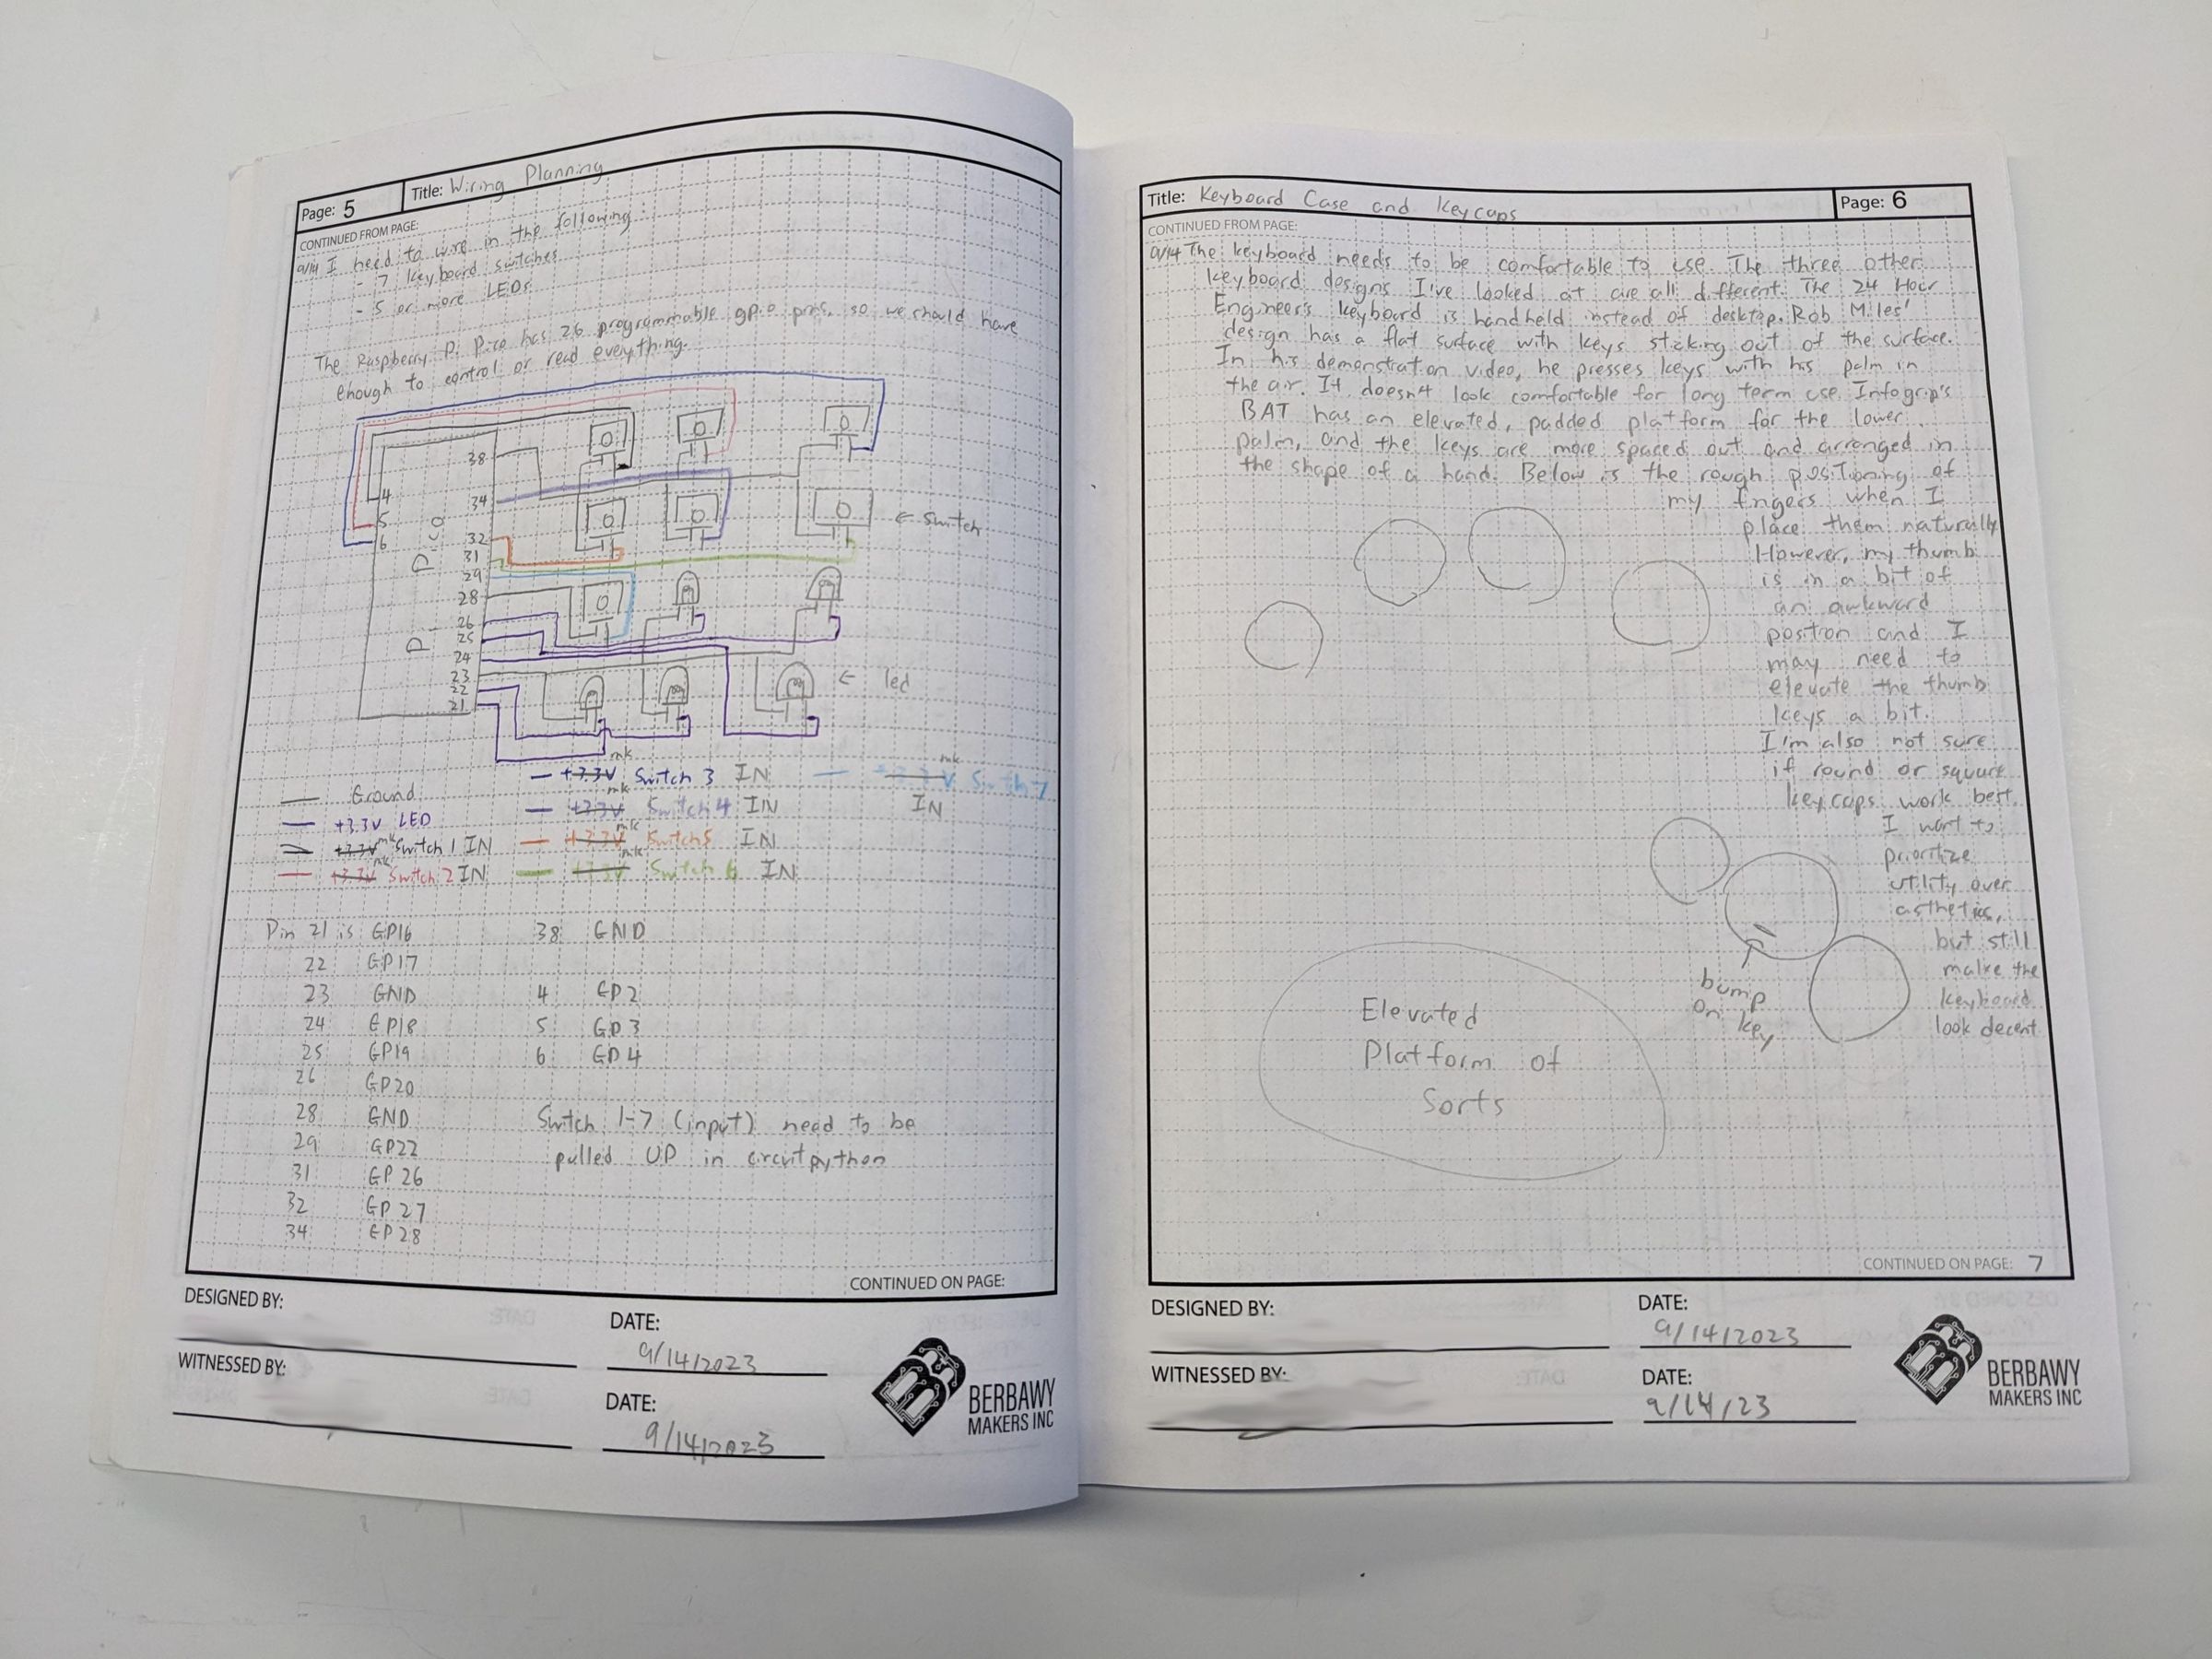 Page: 5
Title: Wiring Planning
CONTINUED FROM PAGE:
9/14 I need to wire in the following:
- 7 keyboard switches
- 5 or more LEDs
The Raspberry Pi Pico has 26 programmable gpio pins, so we should have
enough to control or read everything.
38
34
32
31
29
28
26
25
24
23
22
21
4
5
6
Pi Pico
← Switch
← led
Ground
+3.3V LED
+3.3V mk Switch 1 IN
+3.3V mk Switch 2 IN
+3.3V mk Switch 3 IN
+3.3V mk Switch 4 IN
+3.3V mk Switch 5 IN
+3.3V mk Switch 6 IN
+3.3V mk Switch 7
IN
Pin 21 is GP16
22 GP17
23 GND
24 GP18
25 GP19
26 GP20
28 GND
29 GP22
31 GP26
32 GP27
34 GP28
38 GND
4 GP2
5 GP3
6 GP4
Switch 1-7 (input) need to be
pulled UP in circuitpython
CONTINUED ON PAGE:
DESIGNED BY:
DATE:
9/14/2023
WITNESSED BY:
DATE:
9/14/2023
BERBAWY
MAKERS INC
Title: Keyboard Case and Keycaps
Page: 6
CONTINUED FROM PAGE:
9/14 The keyboard needs to be comfortable to use. The three other
keyboard designs I've looked at are all different. The 24 Hour
Engineer's keyboard is handheld instead of desktop. Rob Miles'
design has a flat surface with keys sticking out of the surface.
In his demonstration video, he presses keys with his palm in
the air. It doesn't look comfortable for long term use. Infogrip's
BAT has an elevated, padded platform for the lower
palm, and the keys are more spaced out and arranged in
the shape of a hand. Below is the rough positioning of
my fingers when I
place them naturally
However, my thumb
is in a bit of
an awkward
position and I
may need to
elevate the thumb
keys a bit.
I'm also not sure
if round or square
keycaps work best.
I want to
prioritize
utility over
asthetics,
but still
make the
keyboard
look decent
bump
on key
Elevated
Platform of
Sorts
CONTINUED ON PAGE: 7
DESIGNED BY:
DATE:
9/14/2023
WITNESSED BY:
DATE:
9/14/23
BERBAWY
MAKERS INC